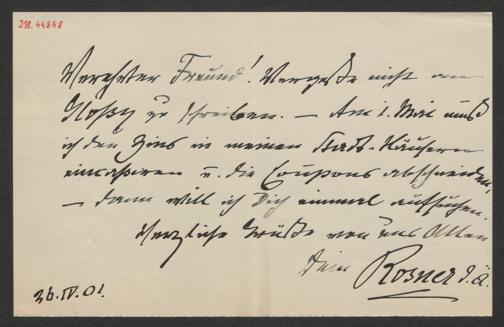 I.N. 44848
Verehrter Freund! Vergeße nicht an
Glossy zu schreiben. – Am 1. Mai muß
ich den Zins in meinen Stadt-Häusern
eincassiren u. die Coupons abschneiden,
– dann will ich Dich einmal aufsuchen.
Herzliche Grüße von uns Allen
Dein Rosner d. ä.
26.IV.01.